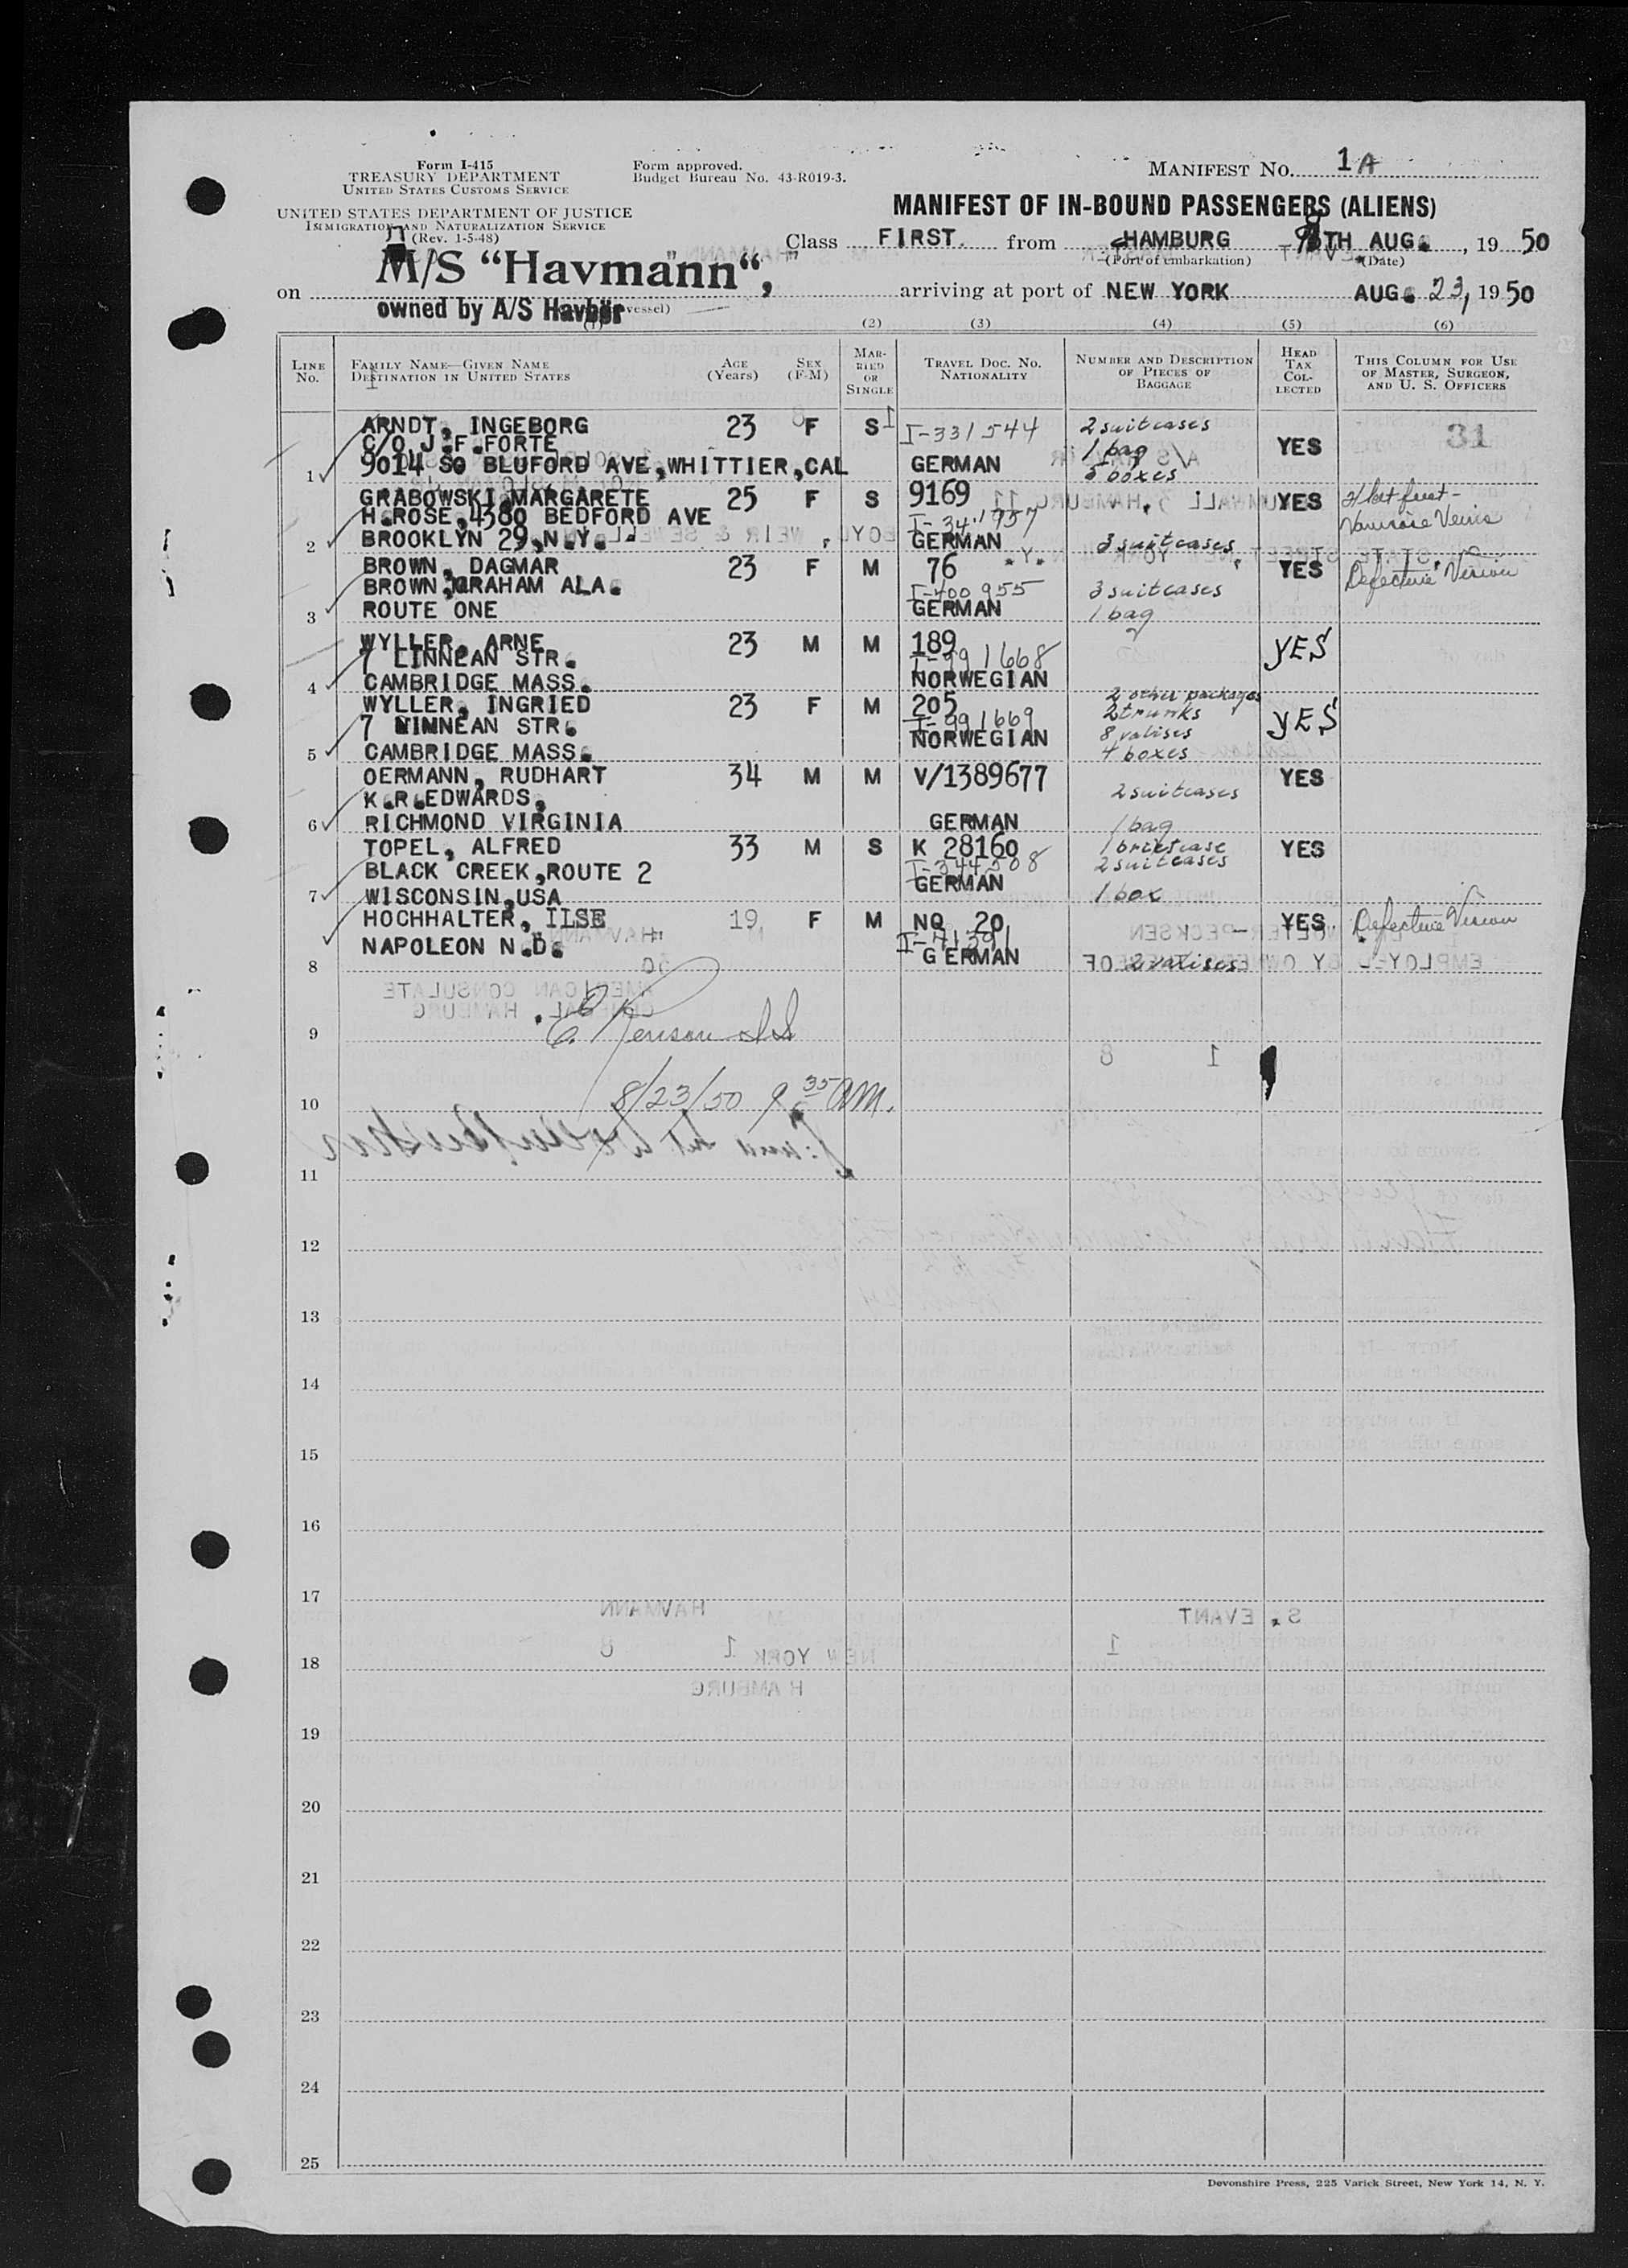 Form I-415
TREASURY DEPARTMENT
UNITED STATES CUSTOMS SERVICE
UNITED STATES DEPARTMENT OF JUSTICE
IMMIGRATION AND NATURALIZATION SERVICE
(Rev. 1-5-48)
Form approved.
Budget Bureau No. 43-R019-3.
MANIFEST NO. 1A
MANIFEST OF IN-BOUND PASSENGERS (ALIENS)
Class FIRST from HAMBURG TH AUG. , 1950
(Port of embarkation) (Date)
on M/S "Havmann", arriving at port of NEW YORK AUG. 23, 1950
owned by A/S Havbör vessel)
(1) (2) (3) (4) (5) (6)
LINE No. FAMILY NAME—GIVEN NAME DESTINATION IN UNITED STATES AGE (Years) SEX (F-M) MARRIED OR SINGLE TRAVEL DOC. NO. NATIONALITY NUMBER AND DESCRIPTION OF PIECES OF BAGGAGE HEAD TAX COLLECTED THIS COLUMN FOR USE OF MASTER, SURGEON, AND U. S. OFFICERS
ARNDT, INGEBORG 23 F S I-331544 2 suitcases 31
C/O J.F.FORTE 1 bag YES
1 9014 SO BLUFORD AVE,WHITTIER,CAL GERMAN boxes
GRABOWSKI,MARGARETE 25 F S 9169 YES Flat feet-
H.ROSE,4380 BEDFORD AVE I-341957 Varicose Veins
2 BROOKLYN 29,N.Y. GERMAN 3 suitcases
BROWN, DAGMAR 23 F M 76 YES Defective Vision
BROWN,GRAHAM ALA. I-400955 3 suitcases
3 ROUTE ONE GERMAN 1 bag
WYLLER, ARNE 23 M M 189 YES
7 LINNEAN STR. I-991668
4 CAMBRIDGE MASS. NORWEGIAN
WYLLER, INGRIED 23 F M 205 2 other packages YES
7 LINNEAN STR. I-991669 2 trunks
8 valises
5 CAMBRIDGE MASS. NORWEGIAN 4 boxes
OERMANN, RUDHART 34 M M V/1389677 YES
K.R.EDWARDS, 2 suitcases
6 RICHMOND VIRGINIA GERMAN 1 bag
TOPEL, ALFRED 33 M S K 28160 1 briefcase YES
BLACK CREEK,ROUTE 2 I-344508 2 suitcases
7 WISCONSIN,USA GERMAN 1 box
HOCHHALTER, ILSE 19 F M NO 20 YES Defective Vision
NAPOLEON N.D. 
8 GERMAN 2 valises
9
8/23/50 9 35 AM.
10
11
12
13
14
15
16
17
18
19
20
21
22
23
24
25
Devonshire Press, 225 Varick Street, New York 14, N. Y.